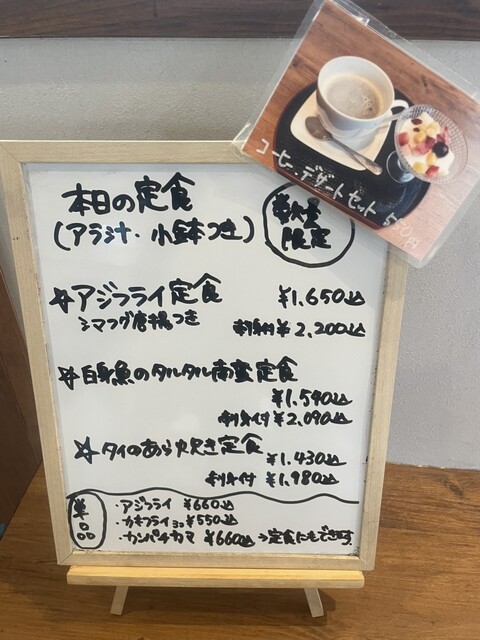 コーヒー、デザートセット 550円
本日の定食
(アラ汁・小鉢つき)
数量
限定
☆アジフライ定食 ¥1,650込
シマフグ唐揚つき 刺身付¥2,200込
☆白身魚のタルタル南蛮定食
¥1,540込
刺身付¥2,090込
☆タイのあら炊き定食
¥1,430込
刺身付 ¥1,980込
単品
・アジフライ ¥660込
・カキフライ3コ ¥550込
・カンパチカマ ¥660込→定食にもできます。